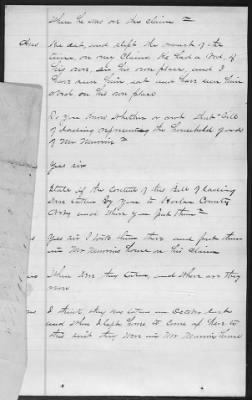 Where he was on his claim?
Ans He eat, and slept the most of the
time, on my claim. He had a bed, of
his own, on his own place, and I
have seen him eat and have seen him
work on his own place
Do you know whether or not that bill
of lading represents the household goods
of Mr
Yes sir
State if the contents of this bill of lading
were taken by you to Harlan County
and where you put them?
Yes sir I took them there and put them
in Mr house on his claim
When were they taken, and where are they
now
I think they were taken in October last
and when I left home to come up here to
this suit they were in Mr house